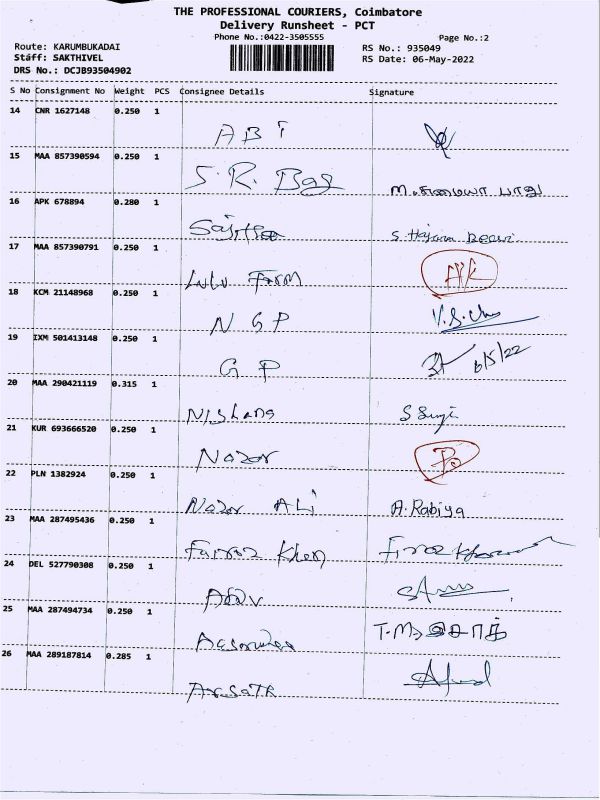 THE PROFESSIONAL COURIERS, Coimbatore
Delivery Runsheet - PCT
Phone No.:0422-3505555
Page No.:2
Route: KARUMBUKADAI
RS No.: 935049
Staff: SAKTHIVEL
RS Date: 06-May-2022
DRS No.: DCJB93504902
S No Consignment No Weight PCS Consignee Details Signature
14 CNR 1627148 0.250 1
A B i
15 MAA 857390594 0.250 1
S. R. Bag
16 APK 678894 0.280 1
S. Hajara Beevi
17 MAA 857390791 0.250 1
Lulu Farm
18 KCM 21148968 0.250 1
N G P
19 IXM 501413148 0.250 1
G P 6/5/22
20 MAA 290421119 0.315 1
Nishana
21 KUR 693666520 0.250 1
Nazar
22 PLN 1382924 0.250 1
Nazar ALi A. Rabiya
23 MAA 287495436 0.250 1
Fairoz Khan
24 DEL 527790308 0.250 1
25 MAA 287494734 0.250 1
26 MAA 289187814 0.285 1